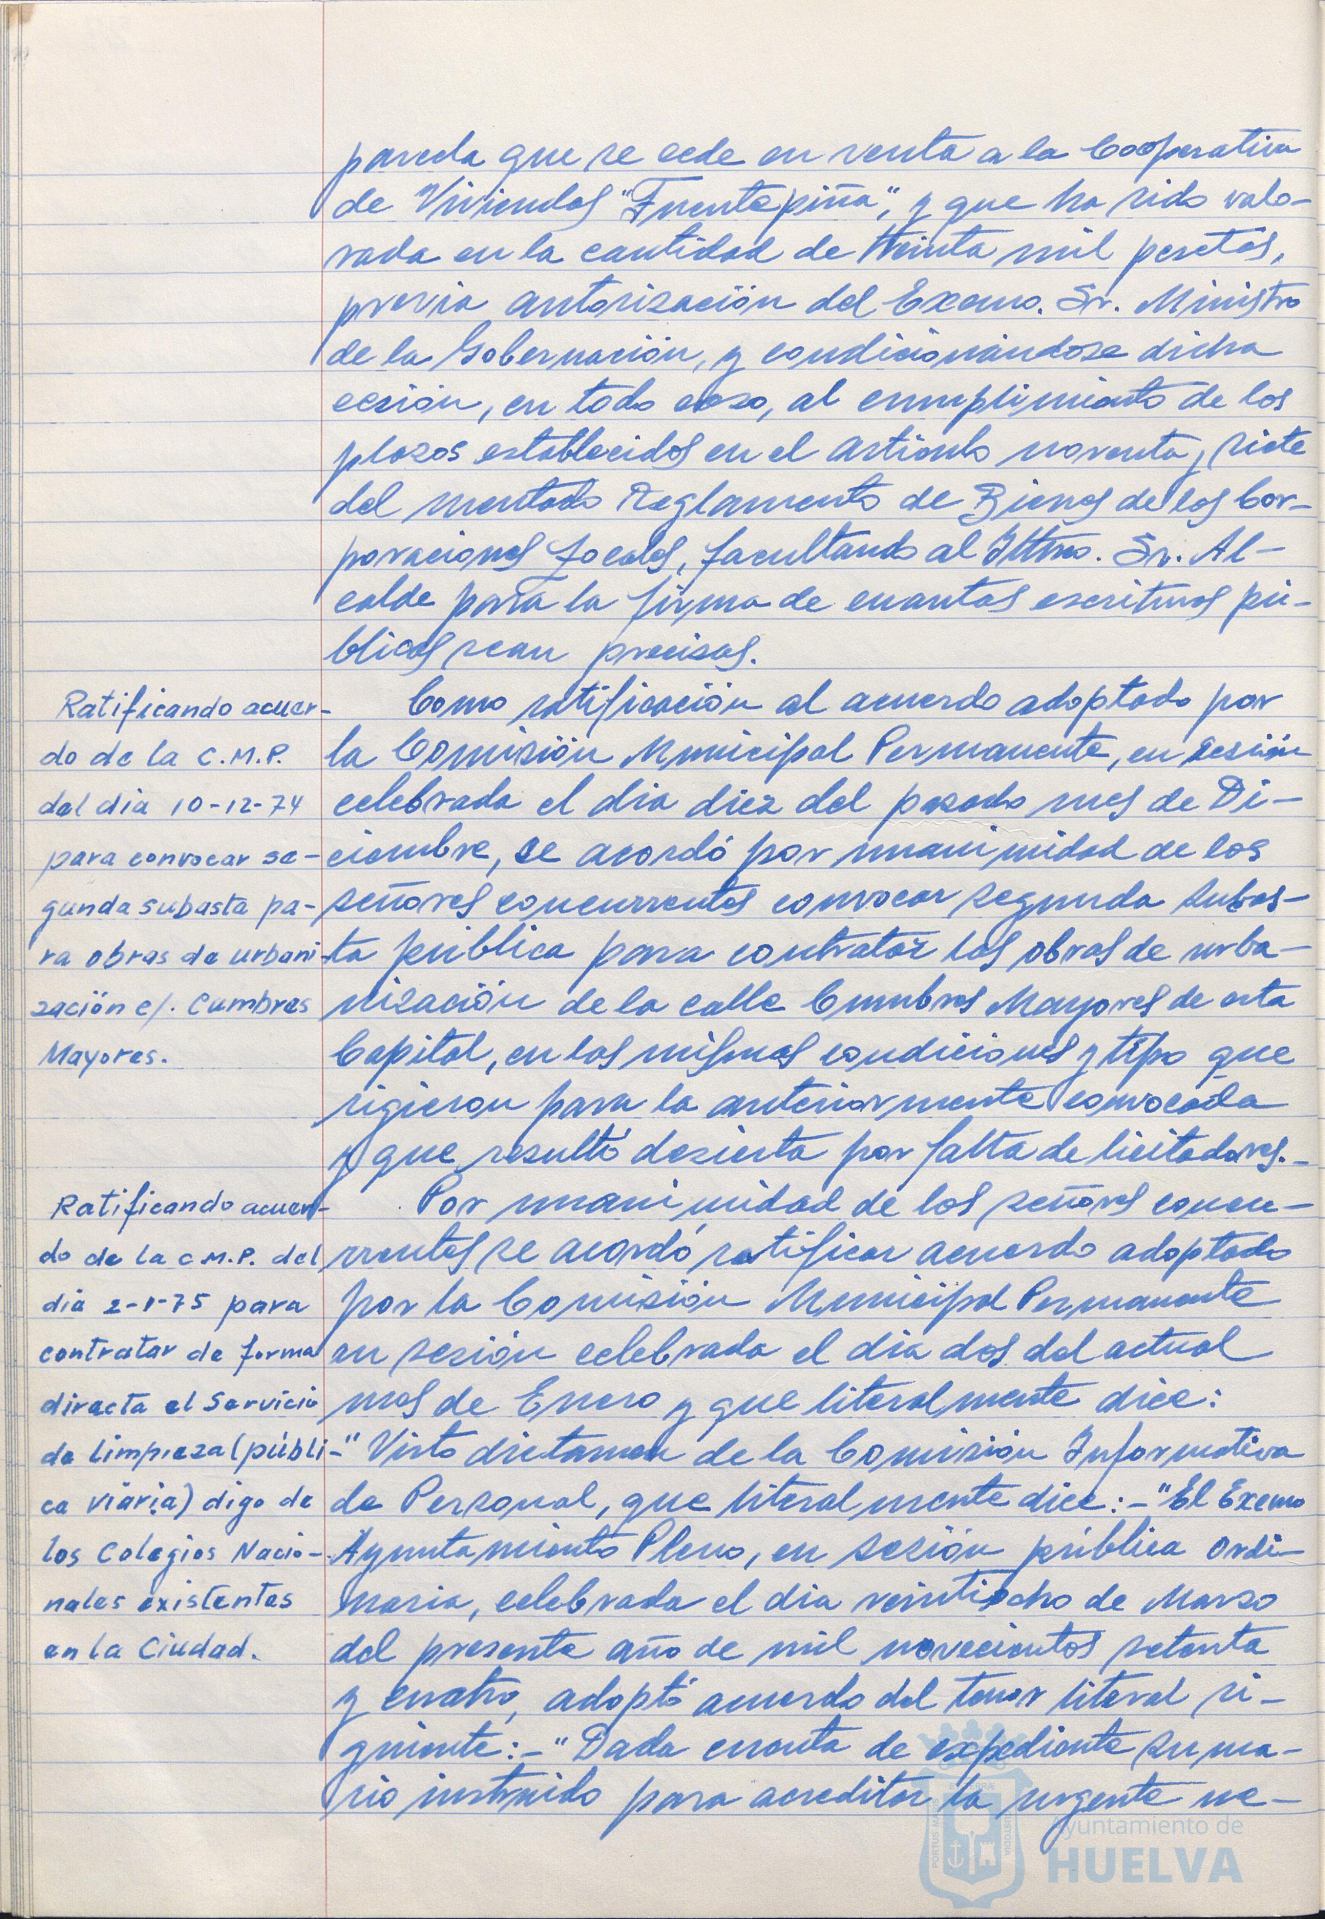 parcela que se cede en venta a la Cooperativa
de Viviendas "Fuentepiña", y que ha sido valo-
rada en la cantidad de treinta mil pesetas,
previa autorización del Excmo. Sr. Ministro
de la Gobernación, y condicionándose dicha
cesión, en todo caso, al cumplimiento de los
plazos establecidos en el artículo noventa y siete
del mentado Reglamento de Bienes de las Cor-
poraciones Locales, facultando al Iltmo. Sr. Al-
calde para la firma de cuantas escrituras pú-
blicas sean precisas.
Ratificando acuer-
do de la C.M.P.
del dia 10-12-74
para convocar se-
gunda subasta pa-
ra obras de urbani-
zación c/. Cumbres
Mayores.
Como ratificación al acuerdo adoptado por
la Comisión Municipal Permanente, en sesión
celebrada el dia diez del pasado mes de Di-
ciembre, se acordó por unanimidad de los
señores concurrentes convocar segunda subas-
ta pública para contratar las obras de urba-
nización de la calle Cumbres Mayores de esta
Capital, en las mismas condiciones y tipo que
rigieron para la anteriormente convocada
y que resultó desierta por falta de licitadores.-
Ratificando acuer-
do de la C.M.P. del
dia 2-1-75 para
contratar de forma
directa el Servicio
de limpieza (públi-
ca viaria) digo de
los Colegios Nacio-
nales existentes
en la Ciudad.
Por unanimidad de los señores concu-
rrentes se acordó ratificar acuerdo adoptado
por la Comisión Municipal Permanente
en sesión celebrada el dia dos del actual
mes de Enero y que literalmente dice:
"Visto dictamen de la Comisión Informativa
de Personal, que literalmente dice:-"El Excmo
Ayuntamiento Pleno, en sesión pública ordi-
naria, celebrada el dia veintiocho de Marzo
del presente año de mil novecientos setenta
y cuatro, adoptó acuerdo del tenor literal si-
guiente:-"Dada cuenta de expediente suma-
rio instruido para acreditar la urgente ne-
Ayuntamiento de
HUELVA